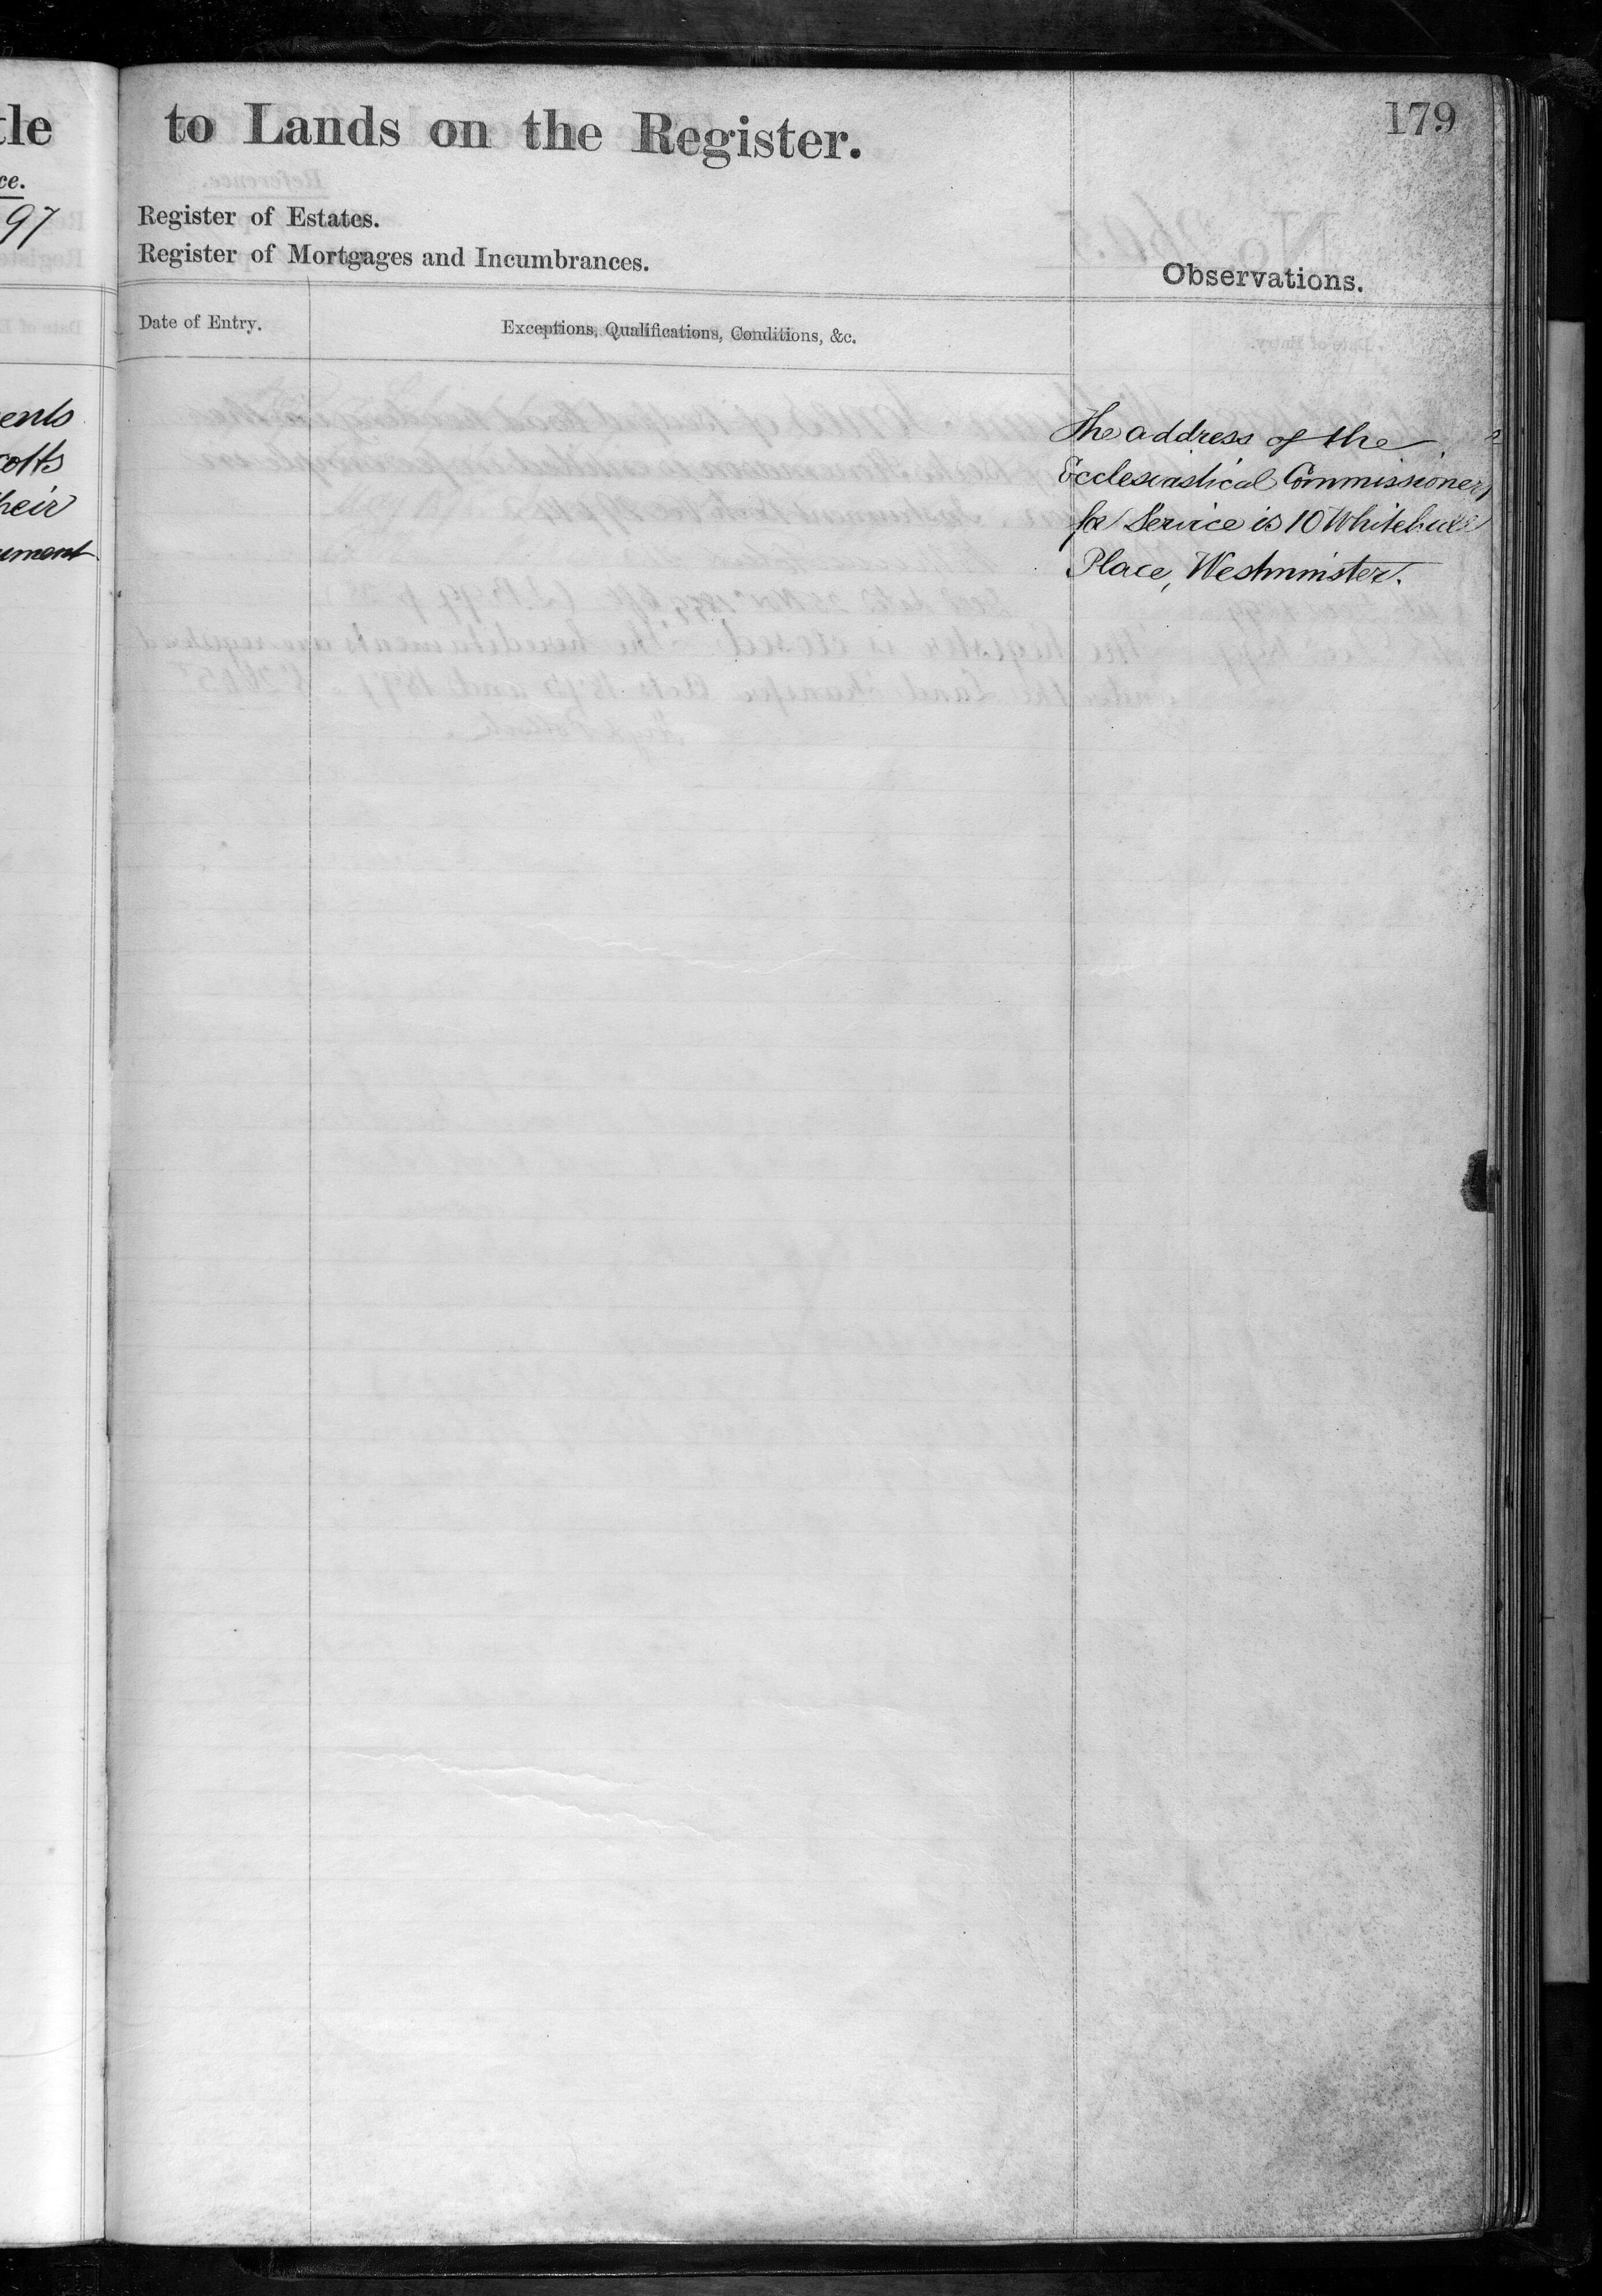 tle
ce.
97
ents
cotts
heir
ument
to Lands on the Register.
179
Register of Estates.
Register of Mortgages and Incumbrances.
Observations.
Date of Entry.
Exceptions, Qualifications, Conditions, &c.
The address of the
Ecclesiastical Commissioners
for Service is 10 Whitehall
Place, Westminster.